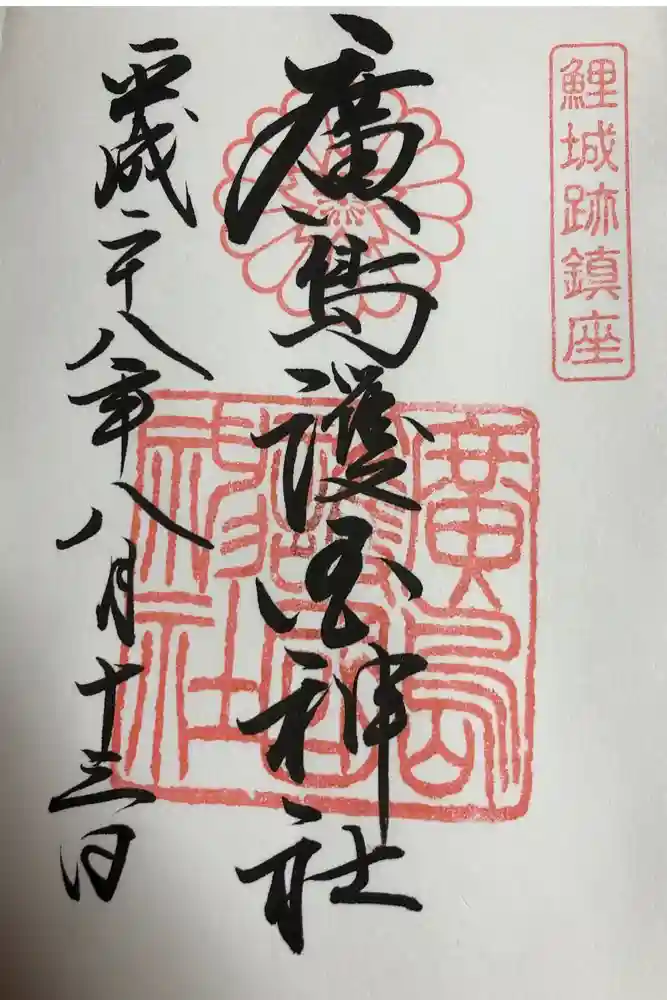 鯉城跡鎮座
廣島護国神社
廣島
護國
神社
平成二十八年八月十三日